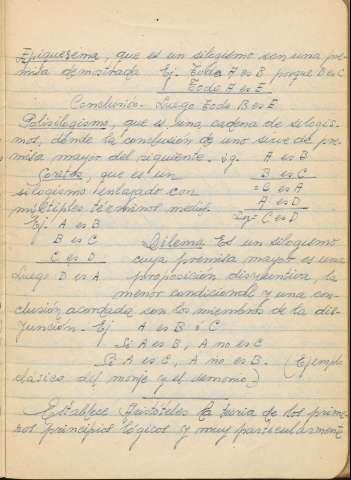 Epiquerema, que es un silogismo con una pre-
misa demostrada Ej. Todo A es B porque D es C
Todo A es E
Conclusión. Luego Todo B es E
Polisilogismo, que es una cadena de silogis-
mos, donde la conclusión de uno sirve de pre-
misa mayor del siguiente. A es B
Sorites, que es un B es C
silogismo enlazado con C es A
múltiples términos medios. A es D
Ej. A es B C es D
B es C Dilema Es un silogismo
C es D cuya premisa mayor es una
Luego D es A proposición disyuntiva, la
menor condicional y una con-
clusión acordada con los miembros de la dis-
junción. Ej A es B ó C
Si A es B, A no es C
Si A es C, A no es B. (Ejemplo
clásico del monje y el demonio.)
Establece Aristóteles la teoría de los prime-
ros principios lógicos y muy particularmente